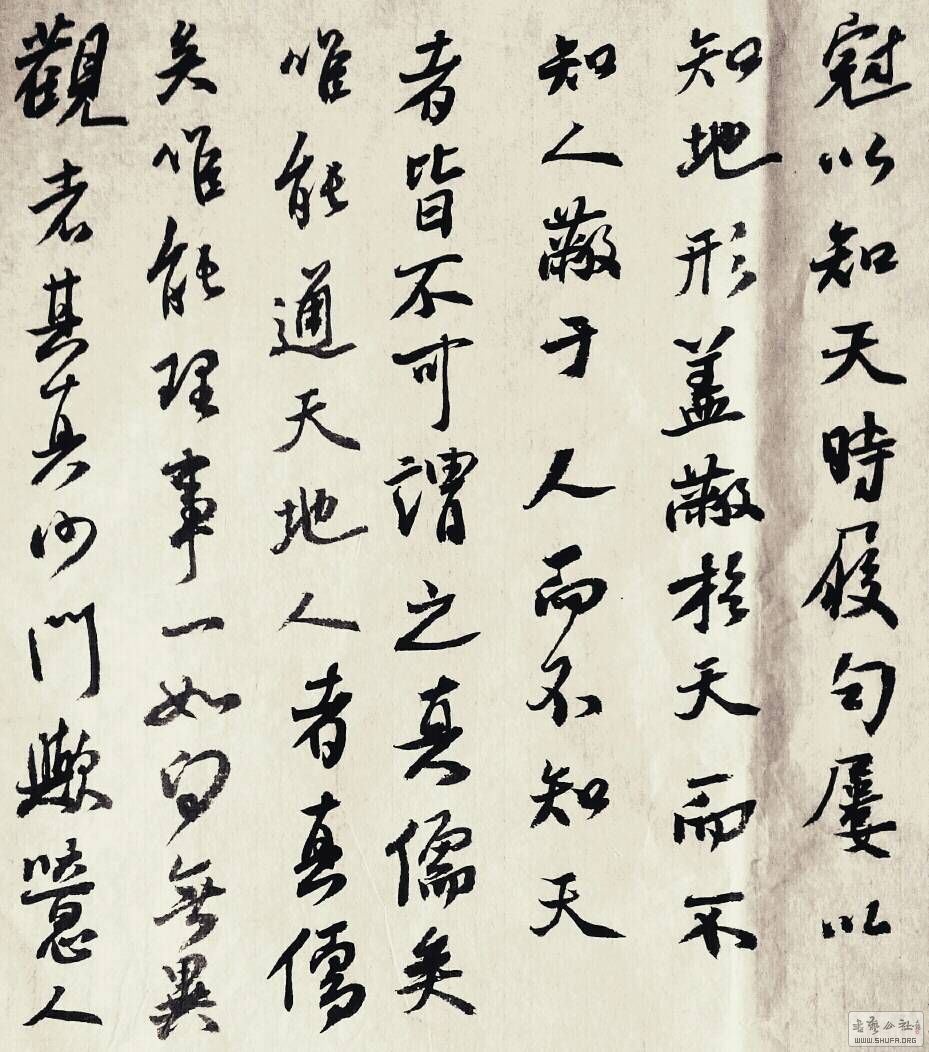 冠以知天時履句屨以
知地形蓋蔽於天而不
知人蔽于人而不知天
者皆不可謂之真儒矣
唯能通天地人者真儒
矣唯能理事一如向無異
觀者其真沙門歟噫人
书艺公社
WWW.SHUFA.ORG